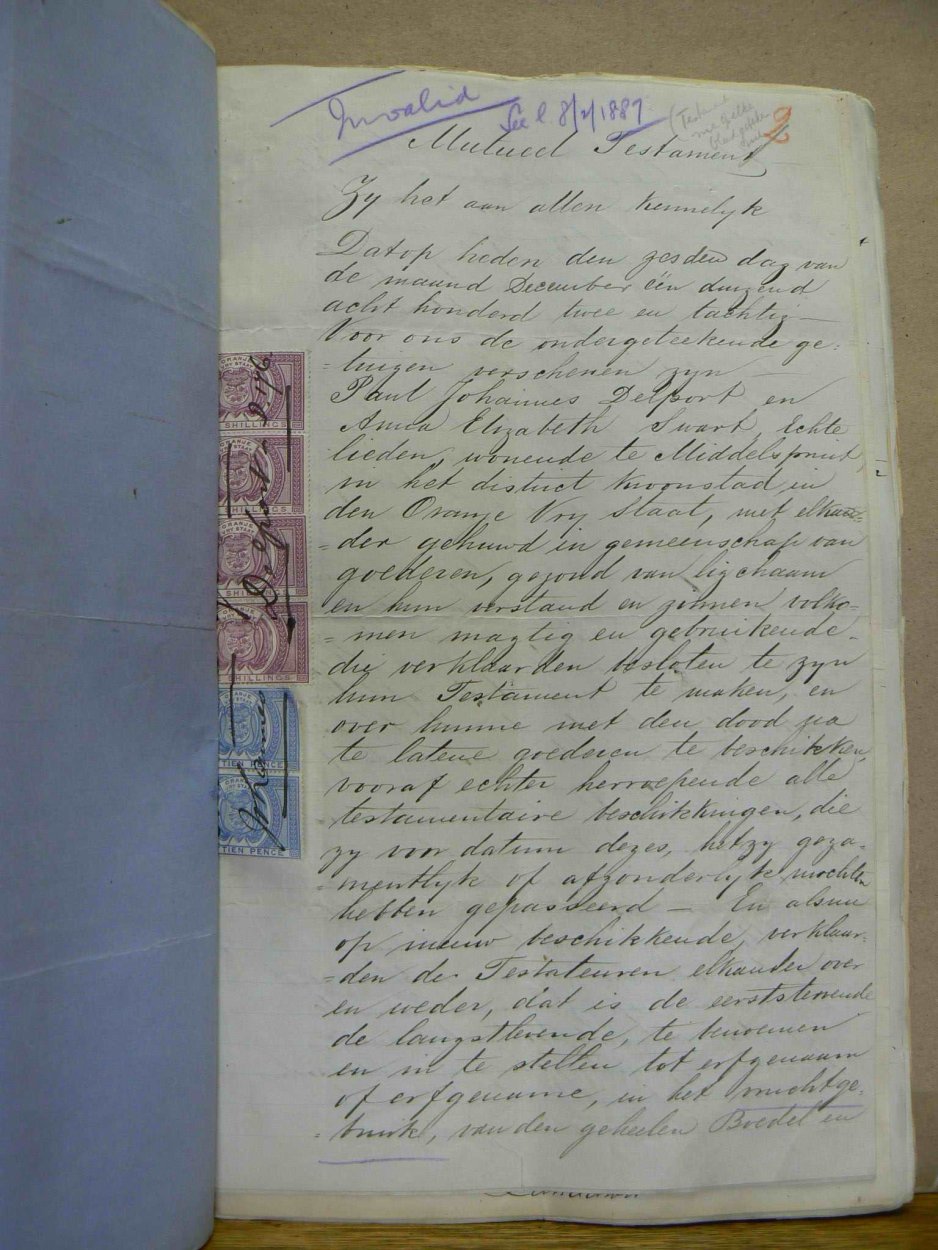 Invalid
See l. 8/2/1887
2
Mutueel Testament
Zy het aan allen kennelyk
Dat op heden den zesden dag van
de maand December één duizend
acht honderd twee en tachtig
Voor ons de ondergeteekende ge-
-tuigen verschenen zyn
Paul Johannes Delport en
Anna Elizabeth Swart, Echte
lieden, wonende te Middelspruit,
in het district Kroonstad, in
den Oranje Vry Staat, met elkan-
-der gehuwd in gemeenschap van
goederen, gezond van ligchaam
en hun verstand en zinnen volko-
-men magtig en gebruikende
die verklaarden besloten te zyn
hun Testament te maken, en
over hunne met den dood na
te latene goederen te beschikken,
vooraf echter herroepende alle
testamentaire beschikkingen, die
zy voor datum dezes, hetzy geza-
-mentlyk of afzonderlyk mochten
hebben gepasseerd — En alsnu
op nieuw beschikkende, verklaar-
-den de Testateuren elkander over
en weder, dat is de eerststervende
de langstlevende, te benoemen
en in te stellen tot erfgenaam
of erfgename, in het vruchtge-
-bruik, van den geheelen Boedel en
ORANJE
VRY STAAT
SHILLINGS
ORANJE
SHILLINGS
ORANJE
VRY STAAT
SHILLINGS
SHILLINGS
TIEN PENCE
ORANJE
TIEN PENCE
Delport